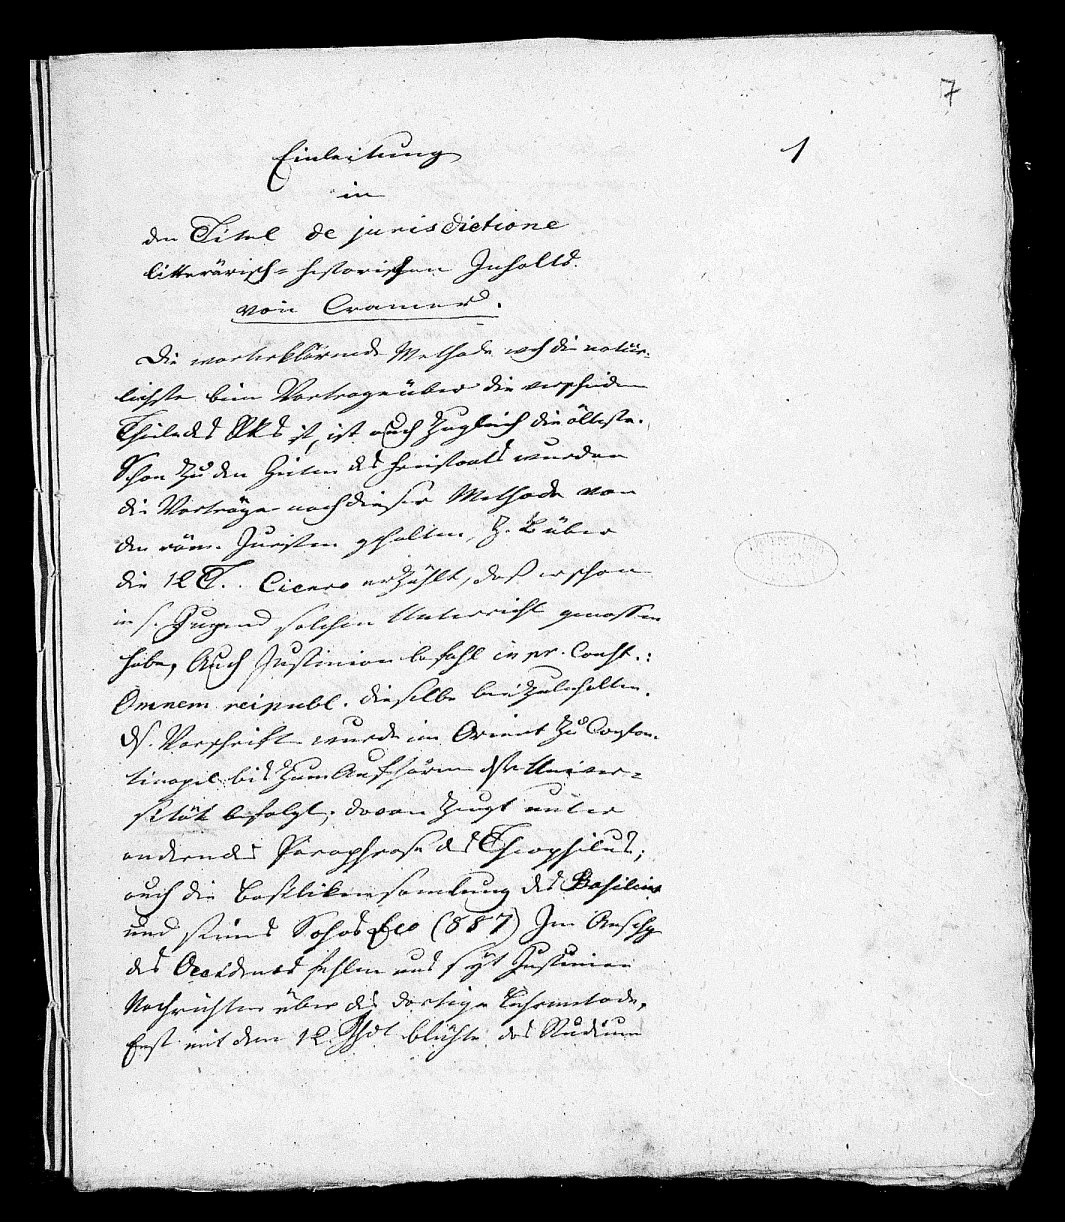 7
1
Einleitung
in
den Titel de jurisdictione
litterärisch-historischen Inhalts.
von Cramer.
Die worterklärende Methode, welch die natür-
lichste beim Vortrage über die verschiedenen
Theile des RRs ist, ist auch zugleich die älteste.
Schon zu den Zeiten des Freistaats wurden
die Vorträge nach dieser Methode von
den röm. Juristen gehalten, z. B über
die 12 T. Cicero erzählt, daß er schon
in s. Jugend solchen Unterricht genossen
habe, Auch Justinian befahl in pr. Const.:
Omnem reipubl. dieselbe beizubehalten.
Ds. Vorschrift wurde im Orient zu Constan-
tinopel bis zum Aufhören dsr Univer-
sität befolgt, davon zeugt unter
andren die Paraphrase des Theophilus;
auch die Basilikensamlung des Basilius
und seines Sohns Leo (887) Im
des Occidents fehlen uns seit Justinian
Nachrichten über die dortige Lehrmetode,
Erst mit dem 12. Jhdt blühte das Studium